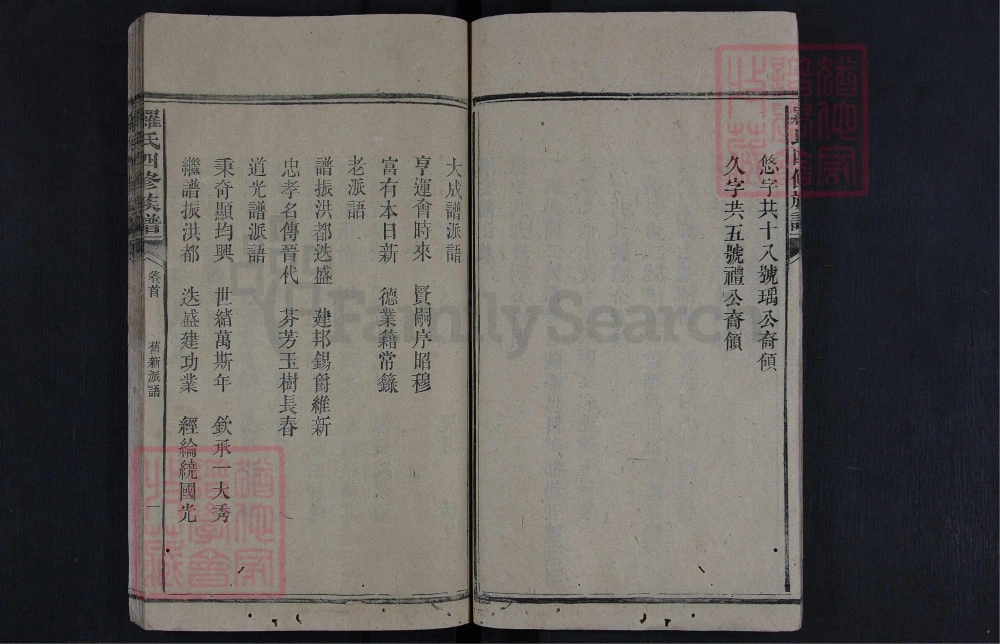 羅氏四修族譜
悠字共十八號瑀公裔領
久字共五號禮公裔領
大成譜派語
亨運會時來 賢嗣序昭穆
富有本日新 德業籍常錄
老派語
譜振洪都迭盛 建邦錫爵維新
忠孝名傳晉代 芬芳玉樹長春
道光譜派語
秉奇顯均興 世緒萬斯年 欽承一大秀
繼譜振洪都 迭盛建功業 經綸繞國光
羅氏四修族譜 卷首 舊新派語 一
FamilySearch